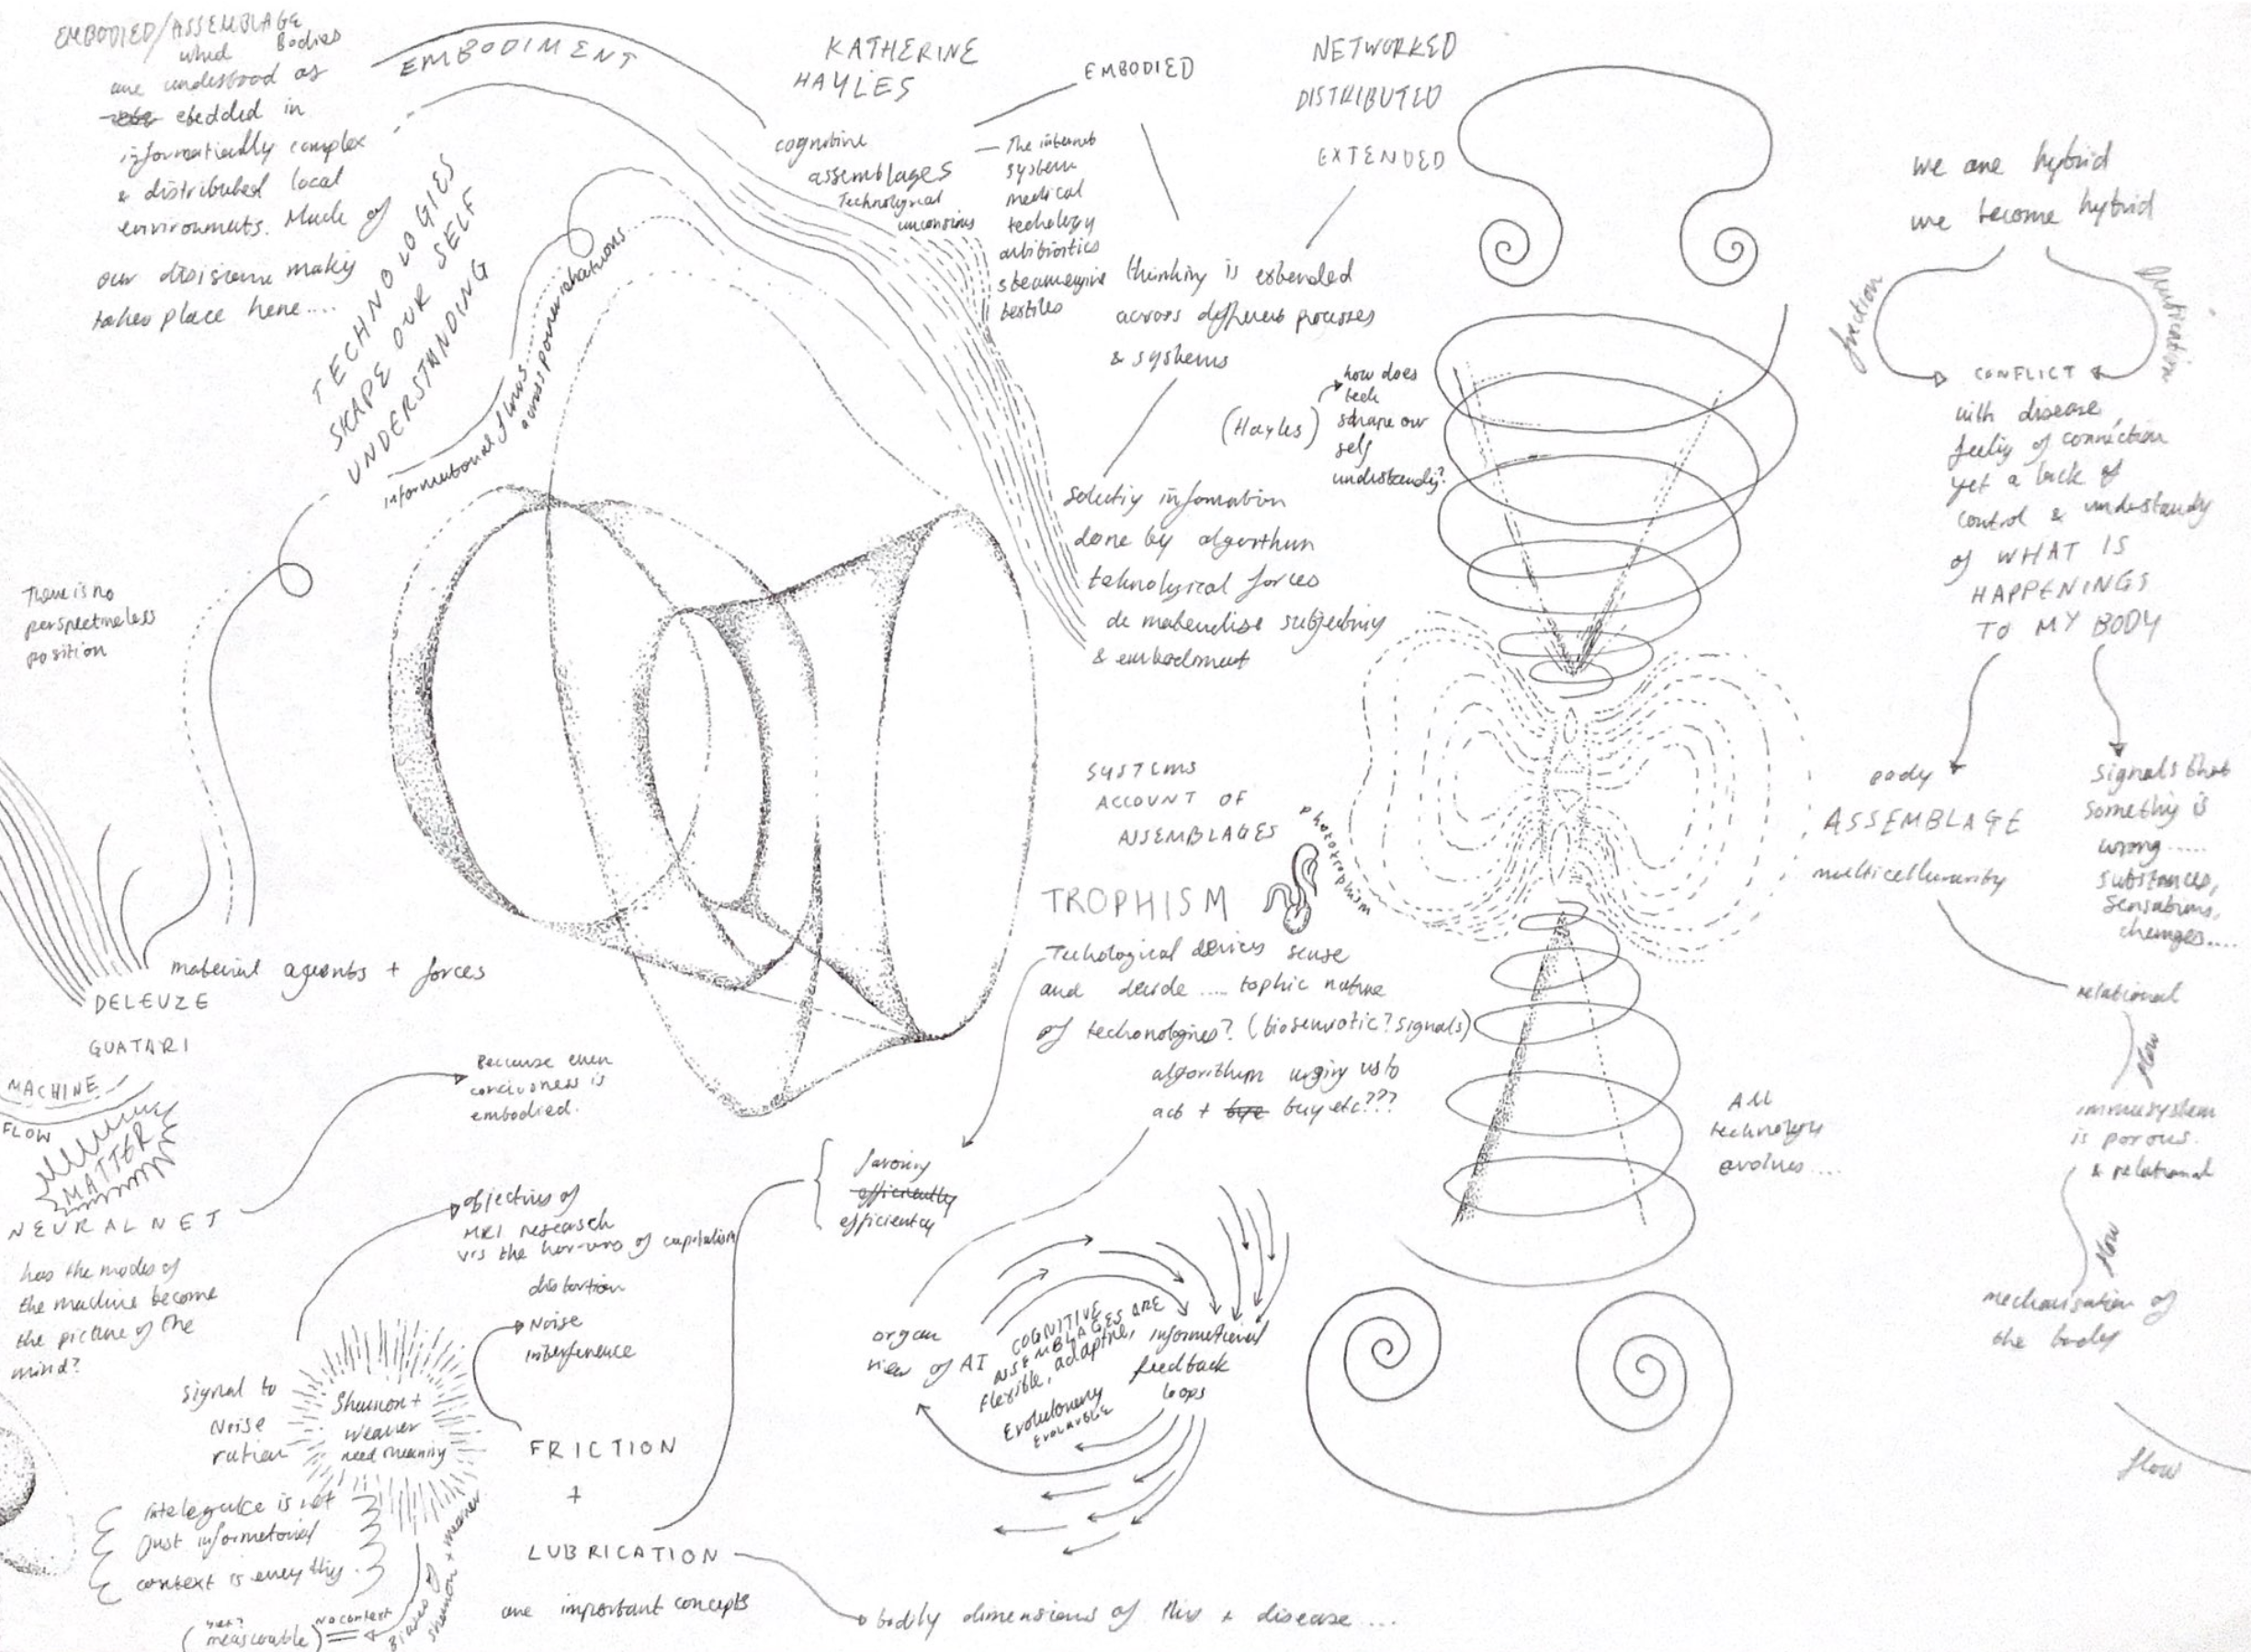 EMBODIED/ASSEMBLAGE
whed Bodies
are understood as
ebedded in
informatically complex
& distributed local
environments. Made of
our disisions making
takes place here....
EMBODIMENT
TECHNOLOGIES
SHAPE OUR SELF
UNDERSTANDING
informational flows...
across power relations
There is no
perspectiveless
position
KATHERINE
HAYLES
EMBODIED
cognitive
assemblages
Technological
unconsious
The internet
system
medical
techology
antibiotics
steamengine
textiles
NETWORKED
DISTRIBUTED
EXTENDED
thinking is extended
across different processes
& systems
(Hayles)
how does
tech
shape our
self
understandig?
selectig infomation
done by algorithm
teknological forces
de materialise subjectivity
& embodiment
we are hybrid
we become hybrid
friction
lubrication
CONFLICT
with disease,
feelig of connection
yet a lack of
control & understandy
of WHAT IS
HAPPENINGS
TO MY BODY
body
ASSEMBLAGE
multicellurarity
signals that
somethig is
wrong.....
substances,
sensations,
changes....
relational
flow
immusystem
is porous.
& relational
flow
mechanisation of
the body
flow
SYSTEMS
ACCOUNT OF
ASSEMBLAGES
phototrophism
TROPHISM
Techological devices sense
and decide .... tophic nature
of techonologies? (biosemiotic? signals)
algorithm urgiy us to
act + bye buy etc???
All
technology
evolves....
material agents + forces
DELEUZE
GUATARI
MACHINE
FLOW
MATTER
NEURAL NET
has the modes of
the machine become
the picture of the
mind?
Because even
conciousness is
embodied.
objectives of
MRI research
v.s the horrors of capitalism
distortion
Noise
interference
favoriy
efficiently
efficientcy
signal to
Noise
ration
Shannon +
Weaver
need meaning
FRICTION
+
LUBRICATION
are important concepts
bodily dimensions of this + disease....
intelegence is not
Just informational
context is every thig.
(measurable)
no context
Biases of
shannon + weaver
organ
view of AI
COGNITIVE
ASSEMBLAGES ARE
flexible, adaptive,
Evolutionary
EVOLVABLE
informational
feedback
loops